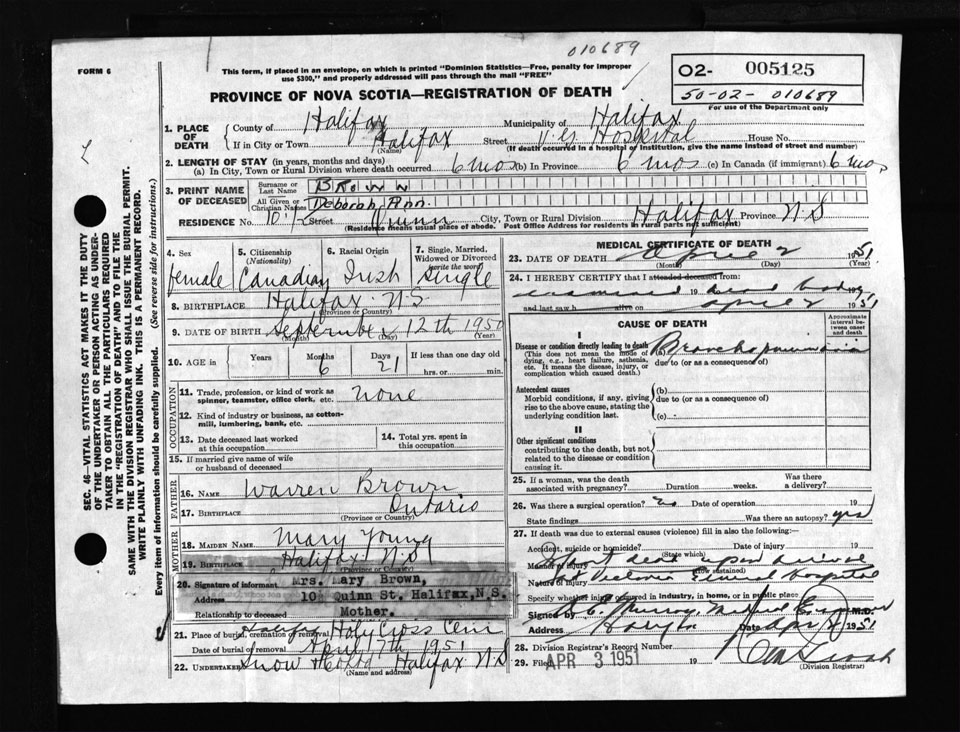 010689
FORM 6
This form, if placed in an envelope, on which is printed "Dominion Statistics—Free, penalty for improper
use $300," and properly addressed will pass through the mail "FREE"
PROVINCE OF NOVA SCOTIA—REGISTRATION OF DEATH
O2- 005125
50-02- 010689
For use of the Department only
1. PLACE OF DEATH
County of Halifax Municipality of Halifax
If in City or Town Halifax Street V.G. Hospital House No.
(Name) (If death occurred in a hospital or institution, give the name instead of street and number)
2. LENGTH OF STAY (in years, months and days)
(a) In City, Town or Rural Division where death occurred 6 mos (b) In Province 6 mos (c) In Canada (if immigrant) 6 mos
3. PRINT NAME OF DECEASED
Surname or Last Name Brown
All Given or Christian Names Deborah Ann.
RESIDENCE No. 10 1/2 Street Quinn City, Town or Rural Division Halifax Province N.S
(Residence means usual place of abode. Post Office Address for residents in rural parts not sufficient)
4. Sex female
5. Citizenship (Nationality) Canadian
6. Racial Origin Irish
7. Single, Married, Widowed or Divorced (write the word) Single
8. BIRTHPLACE Halifax N.S.
(Province or Country)
9. DATE OF BIRTH September 12th 1950
(Month) (Day) (Year)
10. AGE in Years Months 6 Days 21 If less than one day old hrs. or min.
OCCUPATION
11. Trade, profession, or kind of work as spinner, teamster, office clerk, etc. none
12. Kind of industry or business, as cotton-mill, lumbering, bank, etc.
13. Date deceased last worked at this occupation
14. Total yrs. spent in this occupation
15. If married give name of wife or husband of deceased
FATHER
16. NAME Warren Brown
17. BIRTHPLACE Ontario
(Province or Country)
MOTHER
18. MAIDEN NAME Mary Young
19. BIRTHPLACE Halifax N.S
(Province or Country)
20. Signature of informant Mrs. Mary Brown,
Address 10½ Quinn St. Halifax, N.S.
Relationship to deceased Mother.
21. Place of burial, cremation or removal Holy Cross Cem
Date of burial or removal April 7th 1951
22. UNDERTAKER Snow Halifax N.S
(Name and address)
MEDICAL CERTIFICATE OF DEATH
23. DATE OF DEATH April 2 1951
(Month) (Day) (Year)
24. I HEREBY CERTIFY that I attended deceased from:
examined 19 dead body 19
and last saw h alive on April 2 1951
CAUSE OF DEATH
Approximate interval between onset and death
I
Disease or condition directly leading to death (a) Bronchopneumonia
(This does not mean the mode of dying, e.g., heart failure, asthenia, etc. It means the disease, injury, or complication which caused death.)
due to (or as a consequence of)
Antecedent causes
Morbid conditions, if any, giving rise to the above cause, stating the underlying condition last.
(b)
due to (or as a consequence of)
(c)
II
Other significant conditions
contributing to the death, but not related to the disease or condition causing it.
25. If a woman, was the death associated with pregnancy? Duration weeks. Was there a delivery?
26. Was there a surgical operation? no Date of operation 19
State findings Was there an autopsy? yes
27. If death was due to external causes (violence) fill in also the following:
Accident, suicide or homicide? Date of injury 19
(State which)
Manner of injury dead upon arrival
(How sustained)
Nature of injury Victoria General Hospital
Specify whether injury occurred in industry, in home, or in public place
Signed by Murray, Medical Examiner M.D.
Address Date Apr 1951
28. Division Registrar's Record Number
29. Filed APR 3 1951 19
(Division Registrar)
SEC. 46—VITAL STATISTICS ACT MAKES IT THE DUTY
OF THE UNDERTAKER OR PERSON ACTING AS UNDER-
TAKER TO OBTAIN ALL THE PARTICULARS REQUIRED
IN THE "REGISTRATION OF DEATH" AND TO FILE THE
SAME WITH THE DIVISION REGISTRAR WHO SHALL ISSUE THE BURIAL PERMIT.
WRITE PLAINLY WITH UNFADING INK. THIS IS A PERMANENT RECORD.
Every item of information should be carefully supplied. (See reverse side for instructions.)